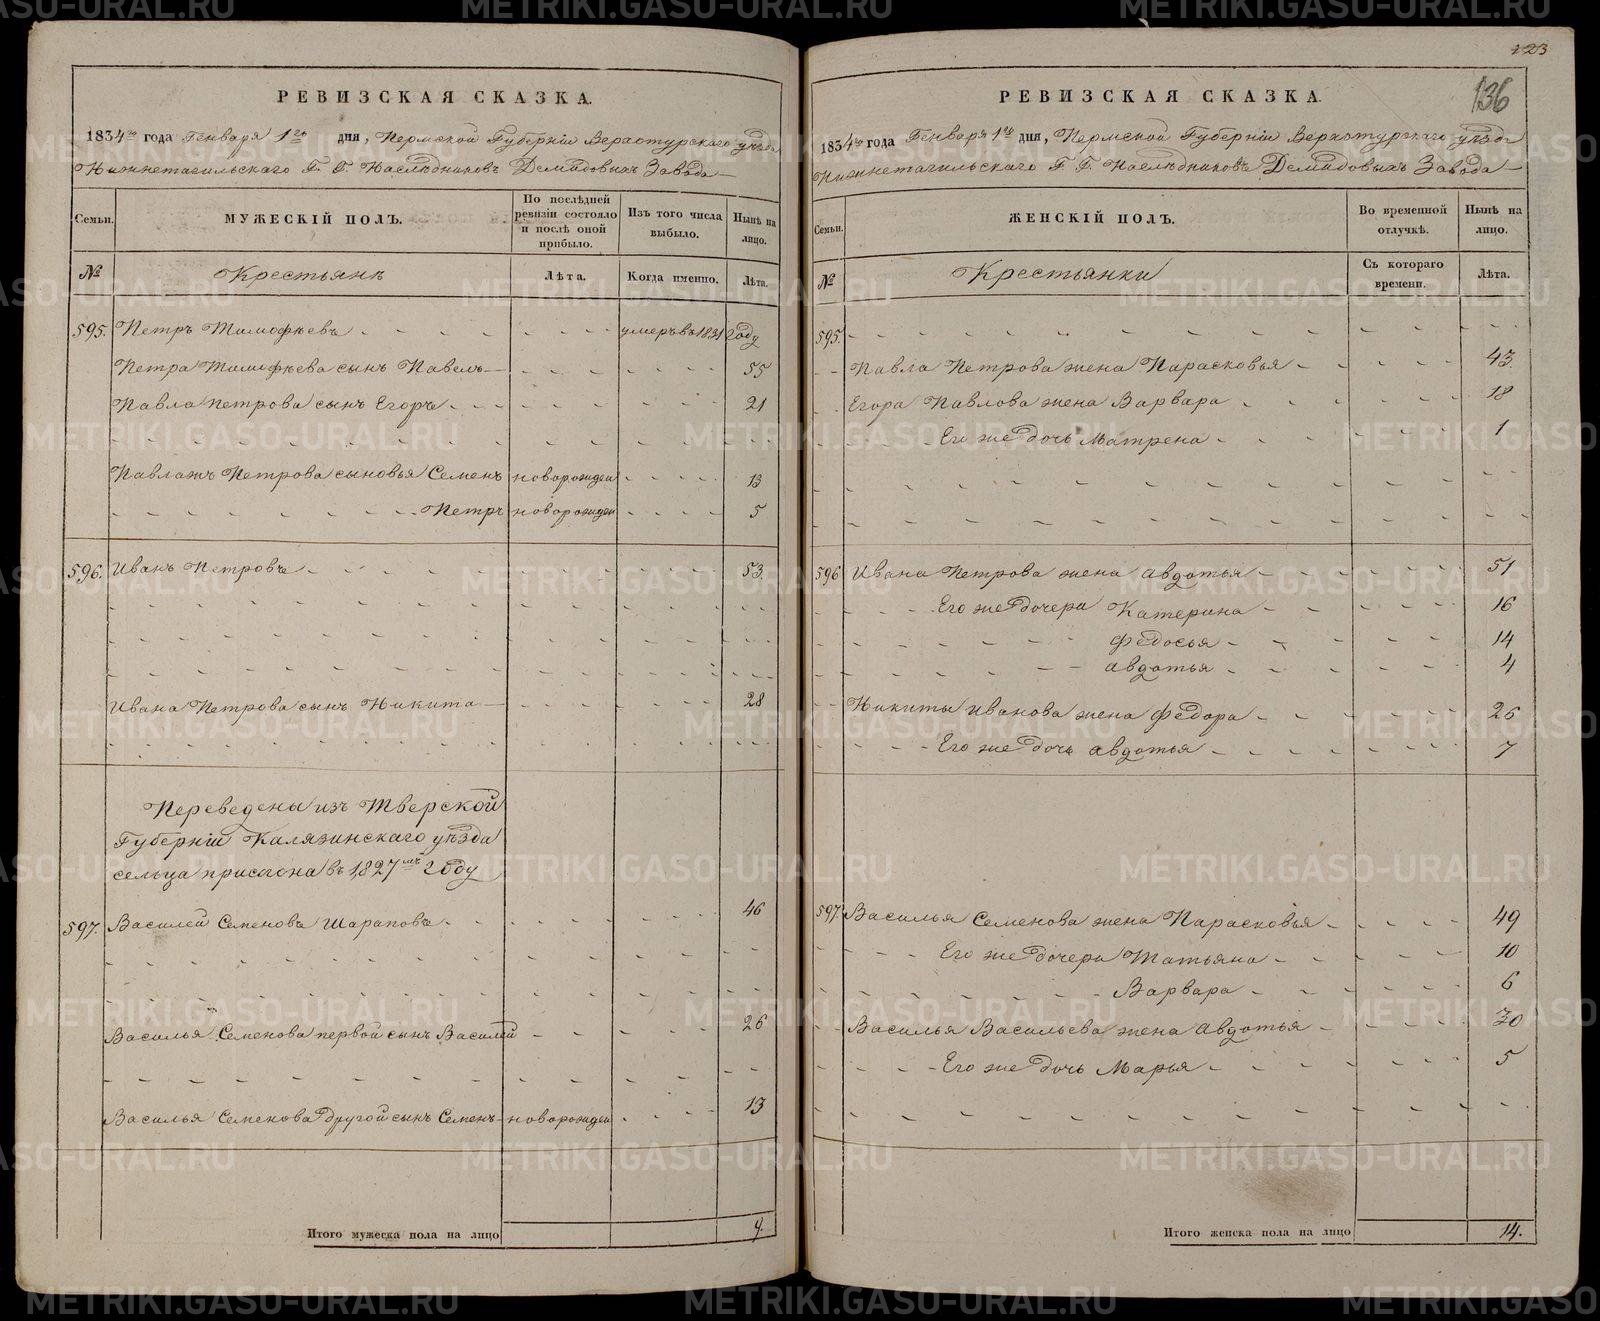 РЕВИЗСКАЯ СКАЗКА.
1834го года Генваря 1го дня, Пермской Губернiи Верхотурскаго уѣзда
Нижнетагильскаго Г. Г. Наслѣдниковъ Демидовыхъ Завода
Семьи. МУЖЕСКIЙ ПОЛЪ. По послѣдней ревизiи состояло и послѣ оной прибыло. Изъ того числа выбыло. Нынѣ на лицо.
№ Крестьянъ Лѣта. Когда именно. Лѣта.
595. Петръ Тимофѣевъ умеръ въ 1831 году
Петра Тимофѣева сынъ Павелъ 55
Павла Петрова сынъ Егоръ 21
Павлажъ Петрова сыновья Семенъ новорожден 13
Петръ новорожден 5
596. Иванъ Петровъ 53.
Ивана Петрова сынъ Никита 28
Переведены изъ Тверской
Губернiи Калязинскаго уѣзда
сельца в 1827мъ году
597. Василей Семеновъ Шараповъ 46
Василья Семенова первой сынъ Василей 26
Василья Семенова другой сынъ Семенъ новорожден 13
Итого мужеска пола на лицо 9.
123
136
РЕВИЗСКАЯ СКАЗКА.
1834го года Генваря 1го дня, Пермской Губернiи Верхотурскаго уѣзда
Нижнетагильскаго Г. Г. Наслѣдниковъ Демидовыхъ Завода
Семьи. ЖЕНСКIЙ ПОЛЪ. Во временной отлучкѣ. Нынѣ на лицо.
№ Крестьянки Съ котораго времени. Лѣта.
595.
Павла Петрова жена Парасковья 43.
Егора Павлова жена Варвара 18
Его же дочь Матрена 1
596 Ивана Петрова жена Авдотья 51
Его же дочери Катерина 16
Федосья 14
Авдотья 4
Никиты Иванова жена Федора 26
Его же дочь Авдотья 7
597. Василья Семенова жена Парасковья 49
Его же дочери Татьяна 10
Варвара 6
Василья Васильева жена Авдотья 30
Его же дочь Марья 5
Итого женска пола на лицо 14.
METRIKI.GASO-URAL.RU